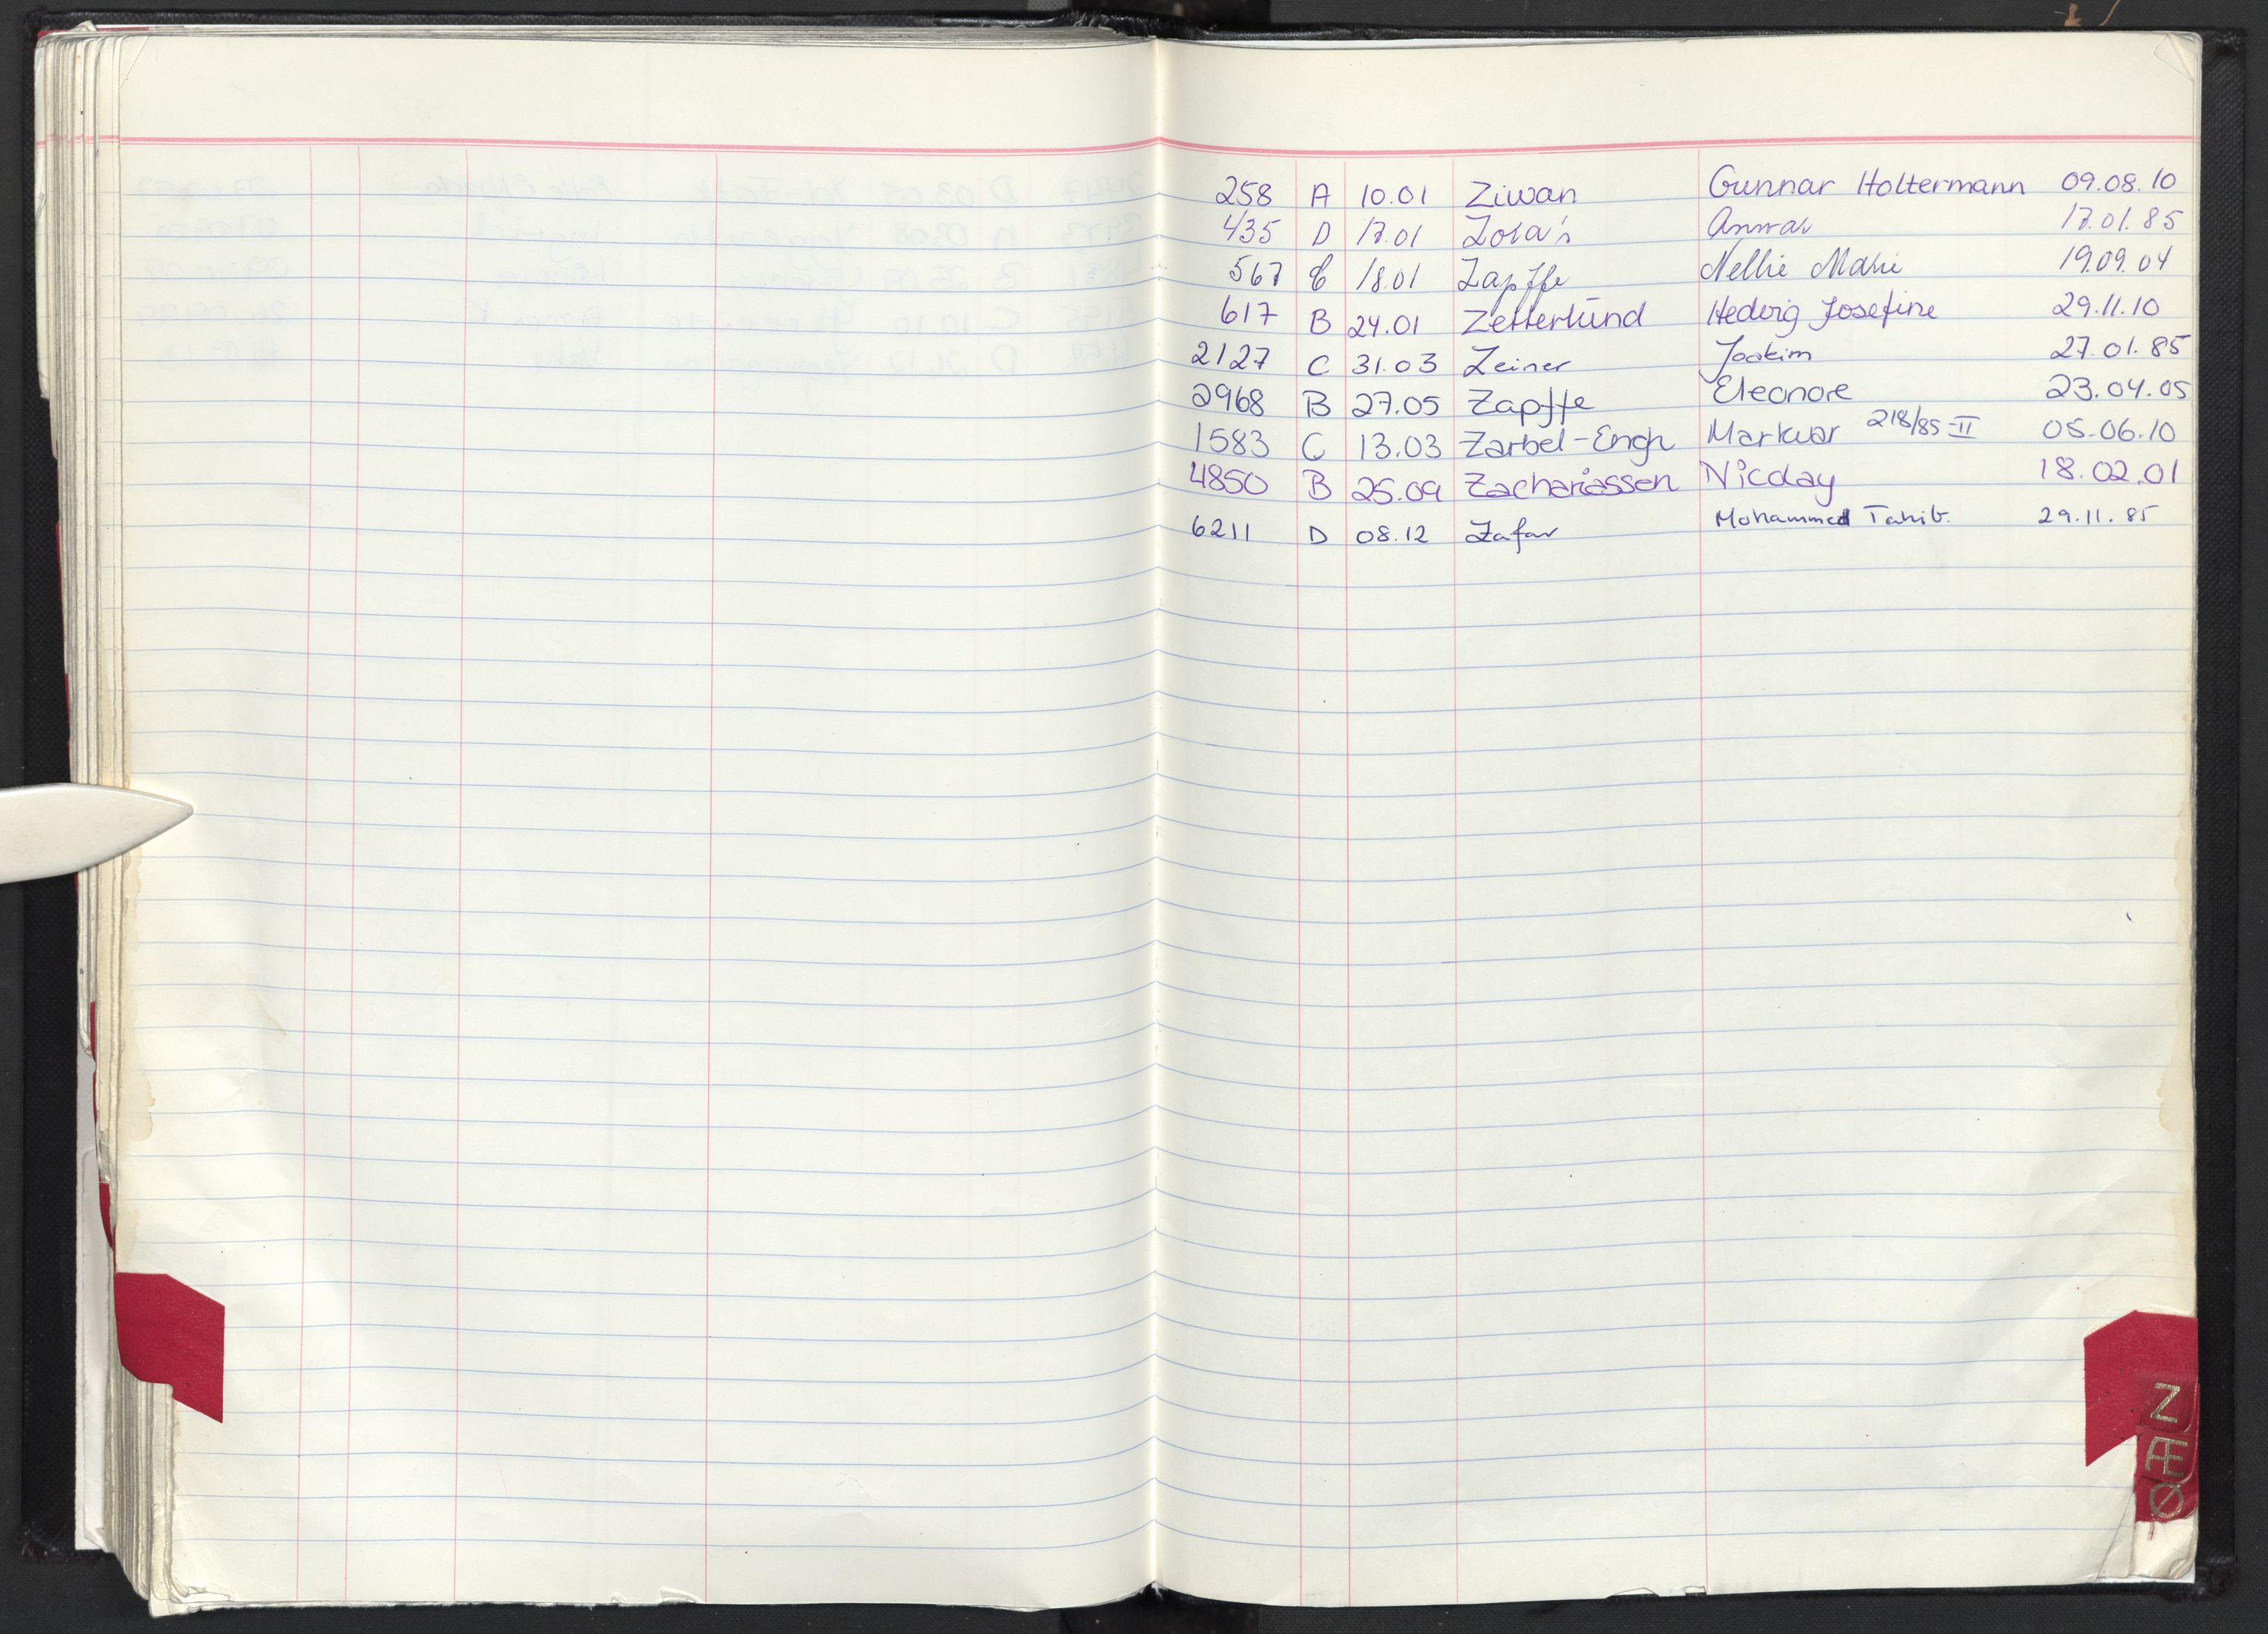 258 A 10.01 Ziwan Gunnar Holtermann 09.08.10
435 D 17.01 Zola's Anwar 17.01.85
567 C 18.01 Zapffe Nellie Marie 19.09.04
617 B 24.01 Zetterlund Hedvig Josefine 29.11.10
2127 C 31.03 Zeiner Joakim 27.01.85
2968 B 27.05 Zapffe Eleonore 23.04.05
1583 C 13.03 Zarbel-Engh Markvar 218/85-II 05.06.10
4850 B 25.09 Zachariassen Nicolay 18.02.01
6211 D 08.12 Zafar Mohammed 29.11.85
Z
Æ
Ø